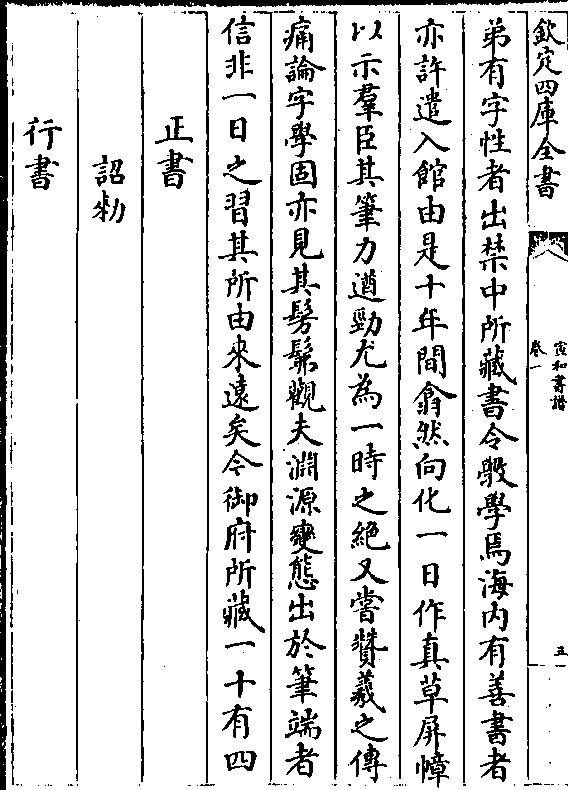 欽定四庫全書
宣和書譜
卷一
五
弟有字性者出禁中所藏書令斆學焉海内有善書者
亦許遣入館由是十年間翕然向化一日作真草屏幛
以示羣臣其筆力遒勁尤為一時之絶又嘗贊羲之傳
痛論字學固亦見其髣髴觀夫淵源變態出於筆端者
信非一日之習其所由來逺矣今御府所藏一十有四
正書
詔勑
行書